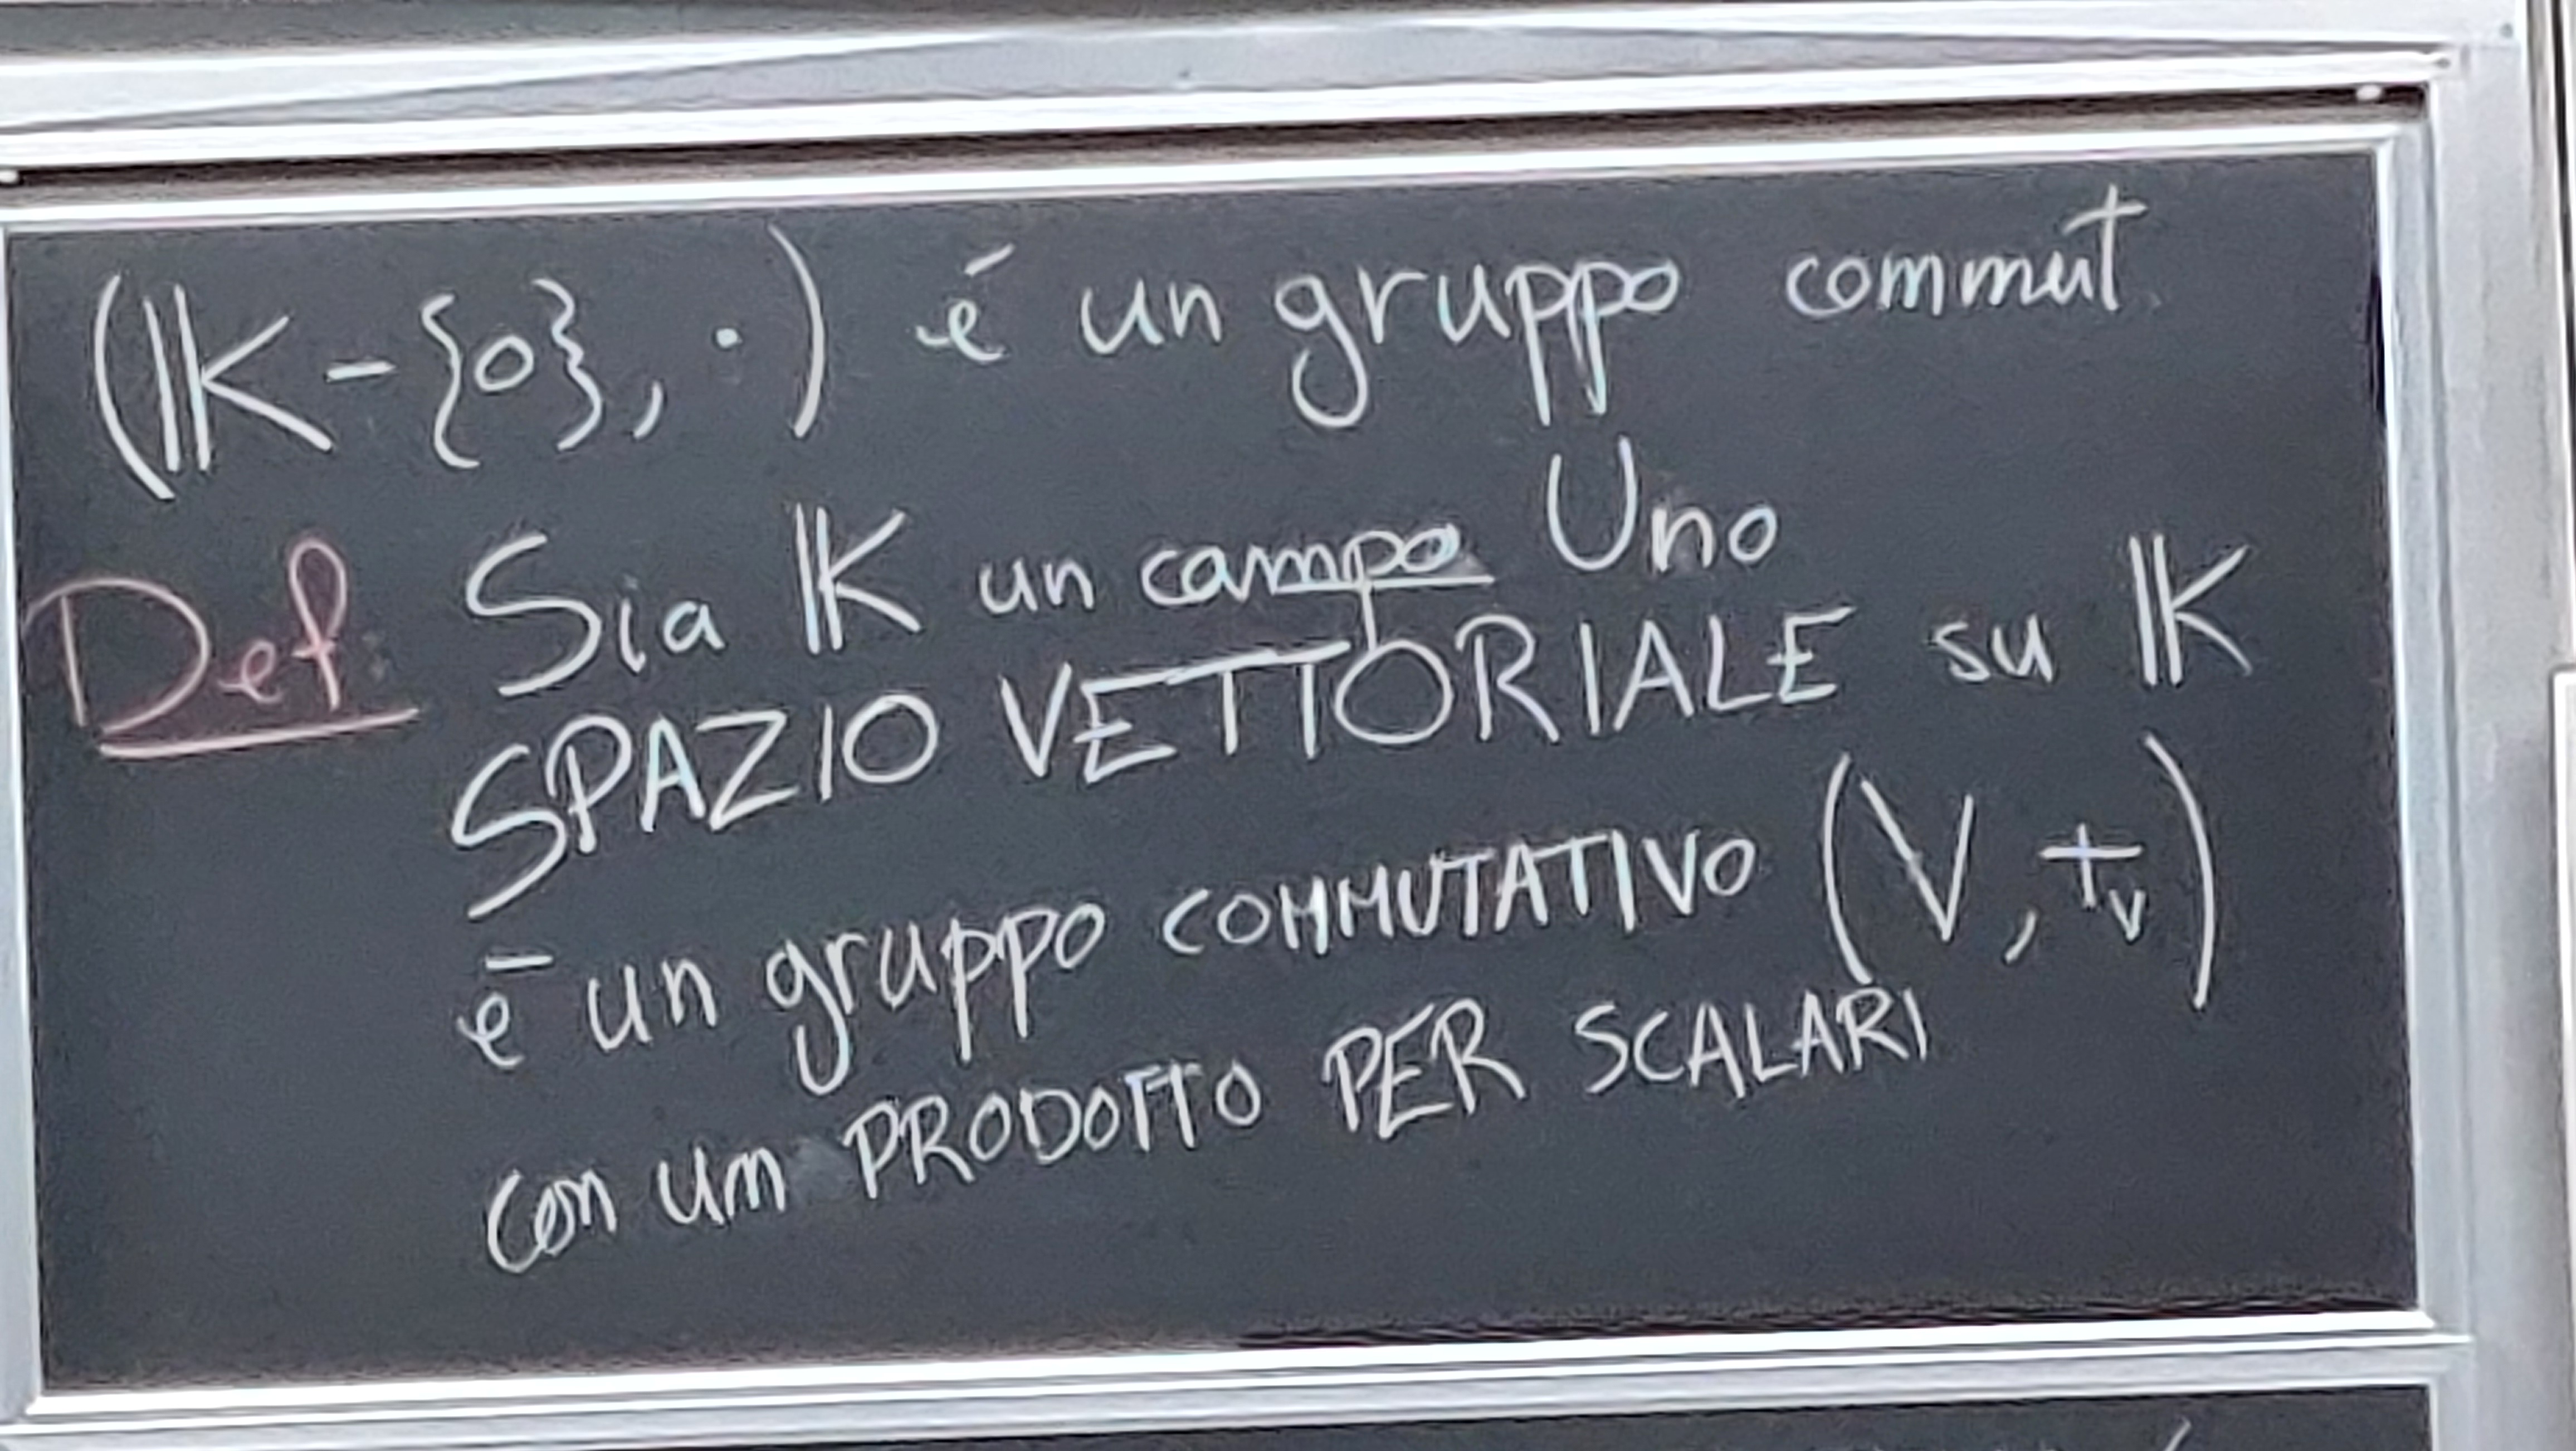 (𝕂-{0}, ·) é un gruppo commut.
Def: Sia 𝕂 un campo Uno
SPAZIO VETTORIALE su 𝕂
è un gruppo COMMUTATIVO (V, +ᵥ)
con un PRODOTTO PER SCALARI